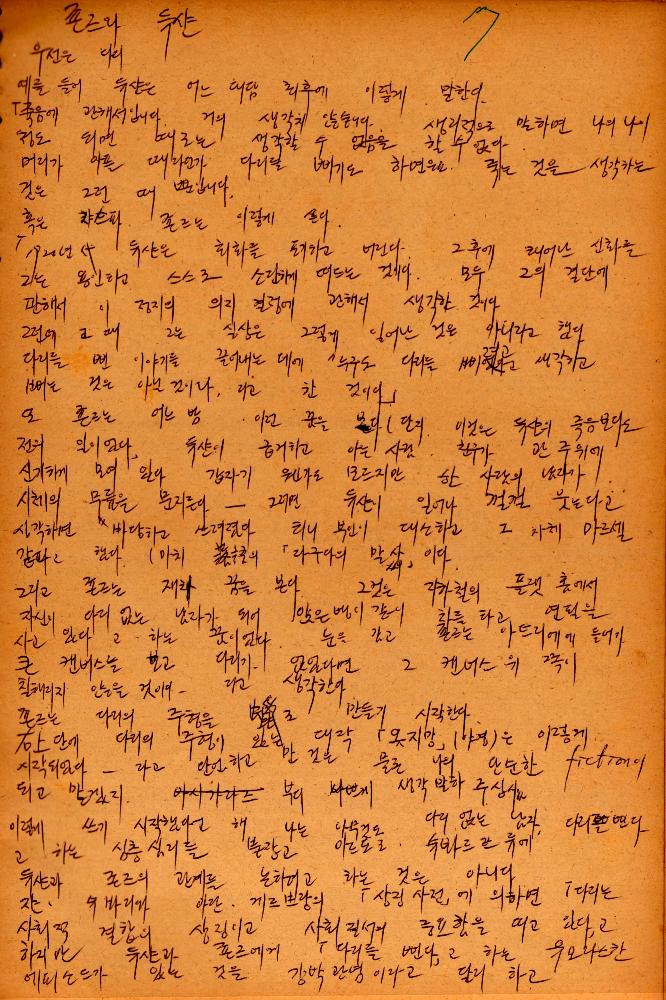 존즈와 뒤샹
우선은 다리
예를 들어 뒤샹은 어느 대담 최후에 이렇게 말한다.
「죽음에 관해서입니다. 거의 생각치 않습니다. 생리적으로 말하면 나의 나이
정도 되면 때로는 생각할 수 없음을 할 수 없다.
머리가 아픈 때라던가 다리를 삐기도 하면은요. 죽는 것을 생각하는
것은 그런 때 뿐입니다.
혹은 존즈는 이렇게 쓴다.
「1920년 뒤샹은 회화를 포기하고 버린다. 그후에 태어난 신화를
그는 용인하고 스스로 떠드는 것이다. 모두 그의 결단에
관해서 이 정지의 의지 결정에 관해서 생각한 것이다
그런데 그 때 그는 실상은 그렇게 일어난 것은 아니라고 했다
다리를 삔 이야기를 끌어내는 데에 「누구도 다리를 생각하고
삐는 것은 아닌 것이라, 라고 한 것이다」
또 존즈는 어느 밤 이런 꿈을 (단지 이것은 뒤샹의 죽음보다도
전의 일이었다) 뒤샹이 하고 아는 사람 친구가 관 주위에
신기하게 모여 있다 갑자기 한 사람의 남자가
시체의 무릎을 문지른다 — 그러면 뒤샹이 일어나 껄껄 웃는다고
생각하면 바닥하고 쓰러졌다 티니 부인이 대소하고 그 차례 마르셀
했다. (마치 「라구다의 말」이다.
그리고 존즈는 재차 꿈을 본다 그것은 지하철의 플랫 홈에서
자신이 다리 없는 남자가 되어 같이 차를 타고, 연필을
사고 있다고 하는 꿈이었다. 눈을 감고 존즈는 아뜨리에에 들어가
큰 캔버스를 보고 다리가 없었다면 그 캔버스 위 쪽이
칠해지지 않았을 것이다 라고 생각한다
존즈는 다리의 주형을 만들기 시작한다.
右上단에 다리의 주형이 있는 대작 「못지망」(야경)은 이렇게
시작되었다 — 라고 단언하고 만 것은 물론 나의 단순한 fiction이
되고 말겠지. 부디 생각 말아 주십시오
이렇게 쓰기 시작했다고 해 나는 아무것도 다리 없는 남자, 다리를 삔다
고 하는 심층 심리를 붙잡고 류에
뒤샹과 존즈의 관계를 논하려고 하는 것은 아니다
게르브랑의 「상징 사전」에 의하면 「다리는
사회적 결합의 상징이고 사회 질서의 중요함을 띠고 있다」고
하지만 뒤샹과 존즈에게 「다리를 삔다」고 하는 유모라스한
에피소드가 있는 것을 강박관념이라고 달리 하고